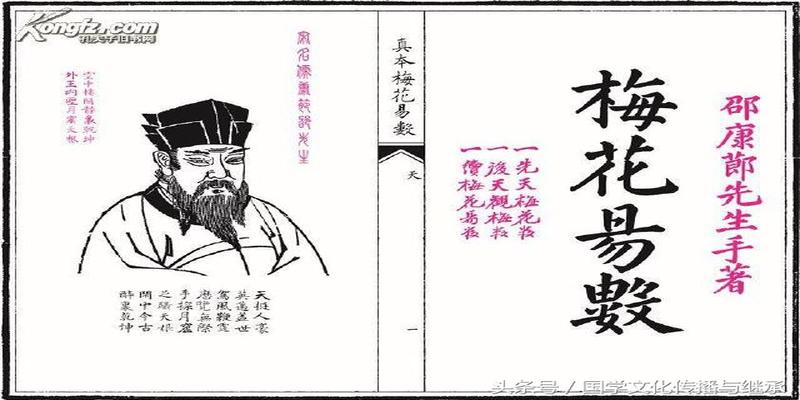 邵康莭先生手著
梅花易數
一先天梅花数
一後天觀梅数
一價梅花易数
真本梅花易數
天
一
宋名儒康節邵先生
空中樓閣静裏乾坤
外王内聖月窟天根
天挺人豪
英邁盖世
駕風鞭霆
歷覽無際
手探月窟
足躡天根
閒中今古
醉裏乾坤
Kongfz.com
孔夫子旧书网
头条号/国学文化传播与继承